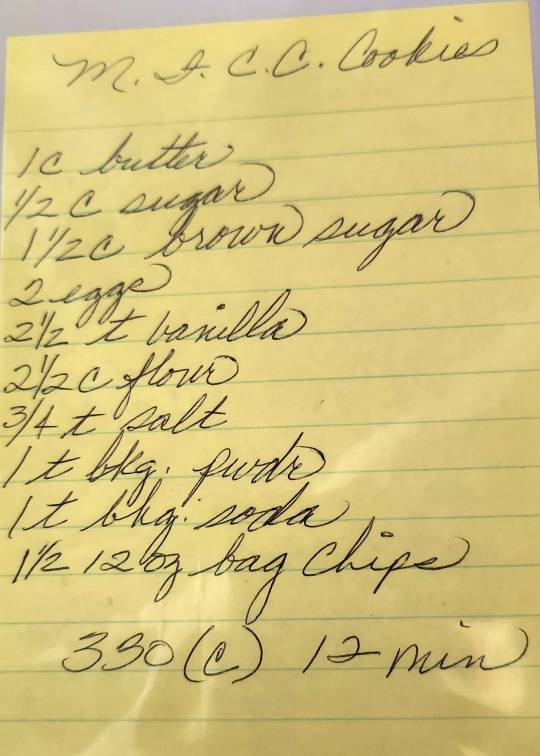 M. I. C. C. Cookies
1 c butter
1/2 c sugar
1 1/2 c brown sugar
2 eggs
2 1/2 t vanilla
2 1/2 c flour
3/4 t salt
1 t bkg. pwdr
1 t bkg. soda
1 1/2 12 oz bag chips
350 (C) 12 min